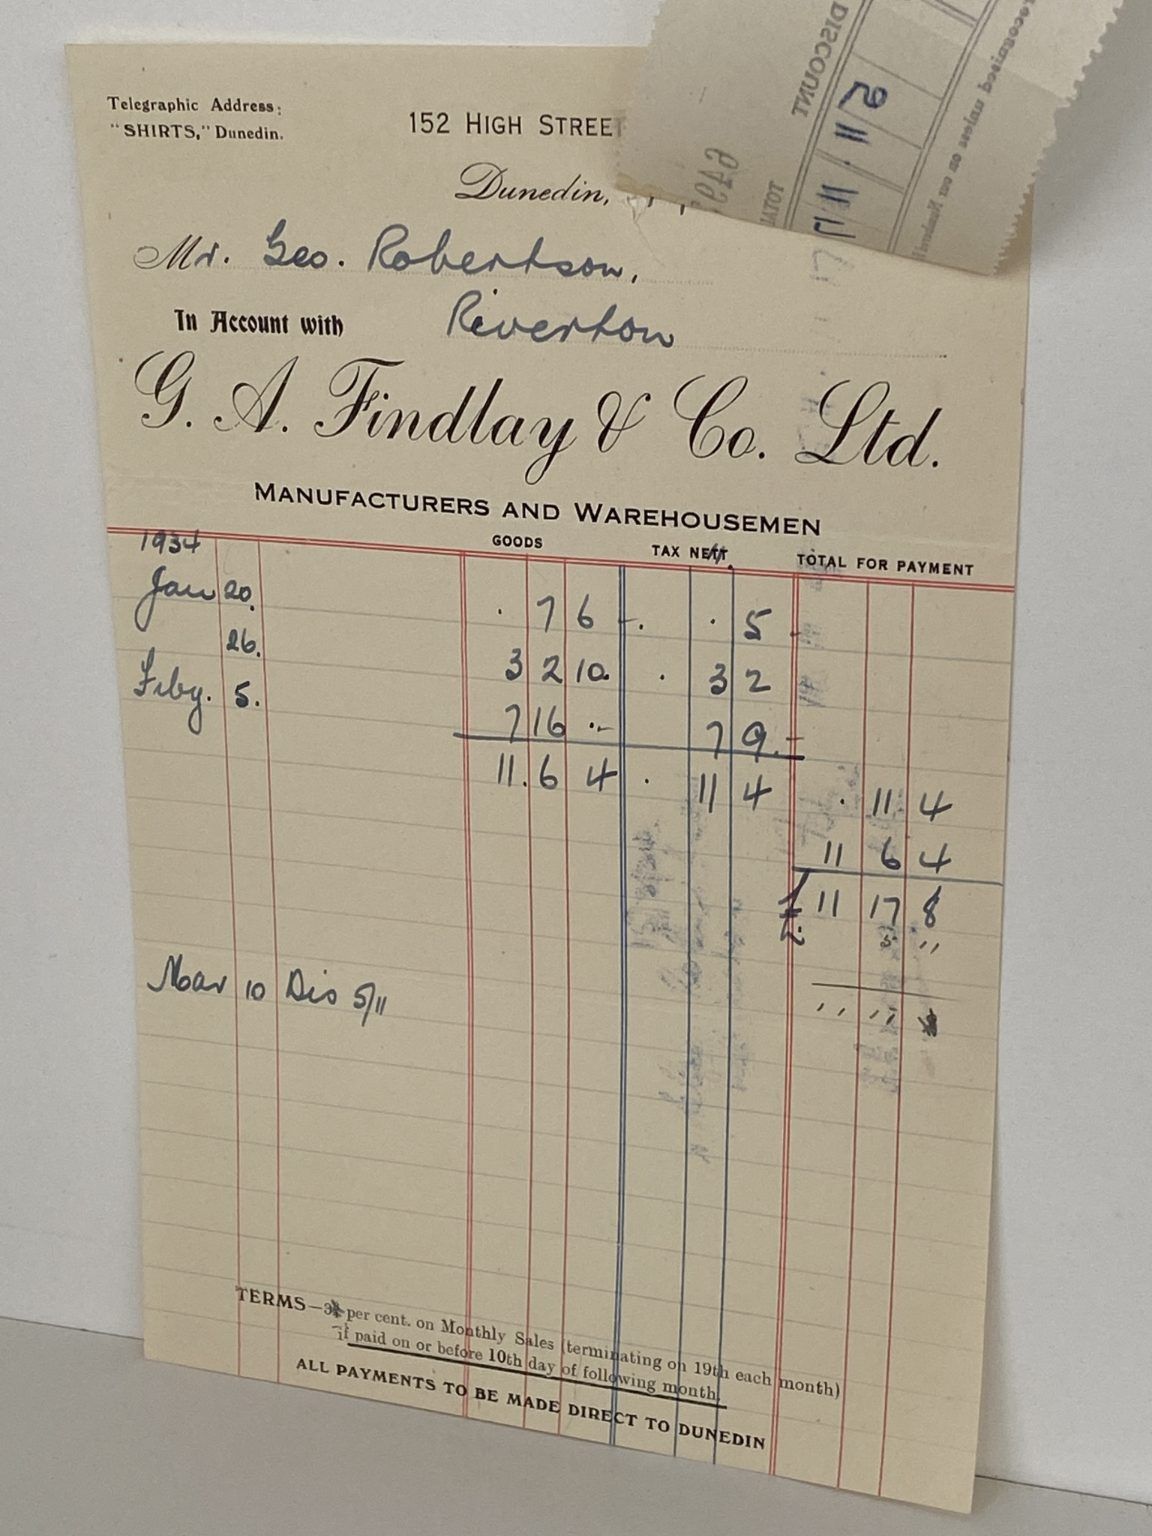 Telegraphic Address:
"SHIRTS," Dunedin.
152 HIGH STREET
Dunedin,
Mr. Geo. Robertson,
In Account with Riverton
G. A. Findlay & Co. Ltd.
MANUFACTURERS AND WAREHOUSEMEN
GOODS TAX NETT. TOTAL FOR PAYMENT
1934
Jan 20. . 7 6 . . 5
26. 3 2 10. . 3 2
Feby. 5. 7 16 .- 7 9.-
11. 6 4 . 11 4
. 11 4
11 6 4
£ 11 17 8
5 "
Mar 10 Dis 5/11
TERMS— per cent. on Monthly Sales (terminating on 19th each month)
if paid on or before 10th day of following month.
ALL PAYMENTS TO BE MADE DIRECT TO DUNEDIN
DISCOUNT
5 11
TOTAL
recognised unless on our